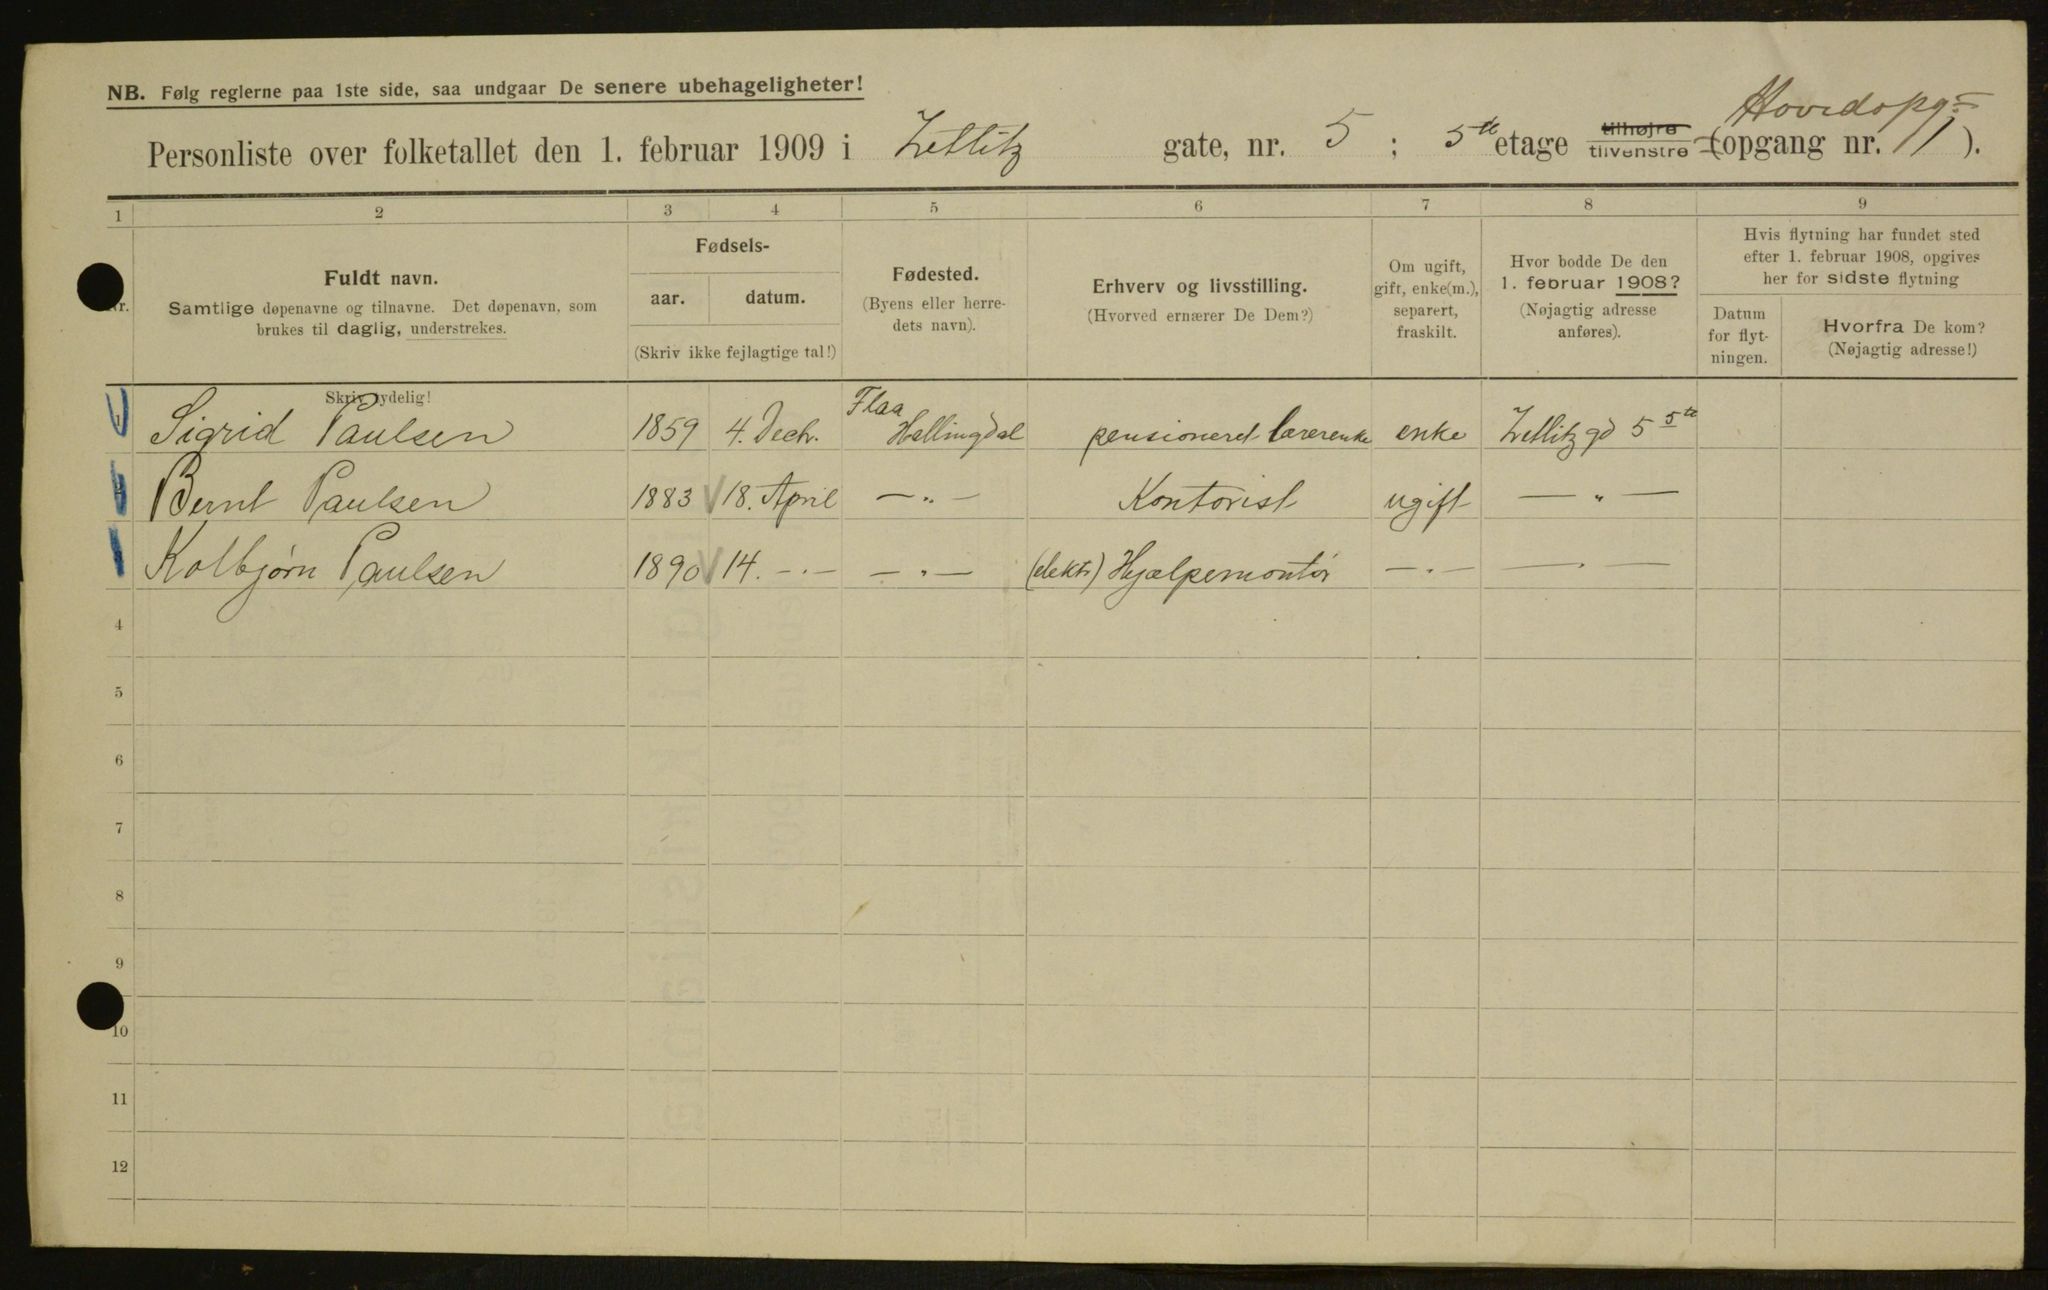 NB. Følg reglerne paa 1ste side, saa undgaar De senere ubehageligheter!
Hovedopg.
Personliste over folketallet den 1. februar 1909 i Zetlitz gate, nr. 5 ; 5te etage tilhøjre tilvenstre (opgang nr. 1).
1 2 3 4 5 6 7 8 9
Nr.
Fuldt navn.
Samtlige døpenavne og tilnavne. Det døpenavn, som
brukes til daglig, understrekes.
Skriv tydelig!
Fødsels-
aar. datum.
(Skriv ikke fejlagtige tal!)
Fødested.
(Byens eller herre-
dets navn).
Erhverv og livsstilling.
(Hvorved ernærer De Dem?)
Om ugift,
gift, enke(m.),
separert,
fraskilt.
Hvor bodde De den
1. februar 1908?
(Nøjagtig adresse
anføres).
Hvis flytning har fundet sted
efter 1. februar 1908, opgives
her for sidste flytning
Datum
for flyt-
ningen.
Hvorfra De kom?
(Nøjagtig adresse!)
1 Sigrid Paulsen 1859 4. Decbr. Flaa Hallingdal pensioneret lærerenke enke Zetlitz gd 5 5te
2 Bernt Paulsen 1883 18. April — „ — Kontorist ugift — „ —
3 Kolbjørn Paulsen 1890 14. — „ — — „ — (elektr) Hjælpemontør — „ — — „ —
4
5
6
7
8
9
10
11
12